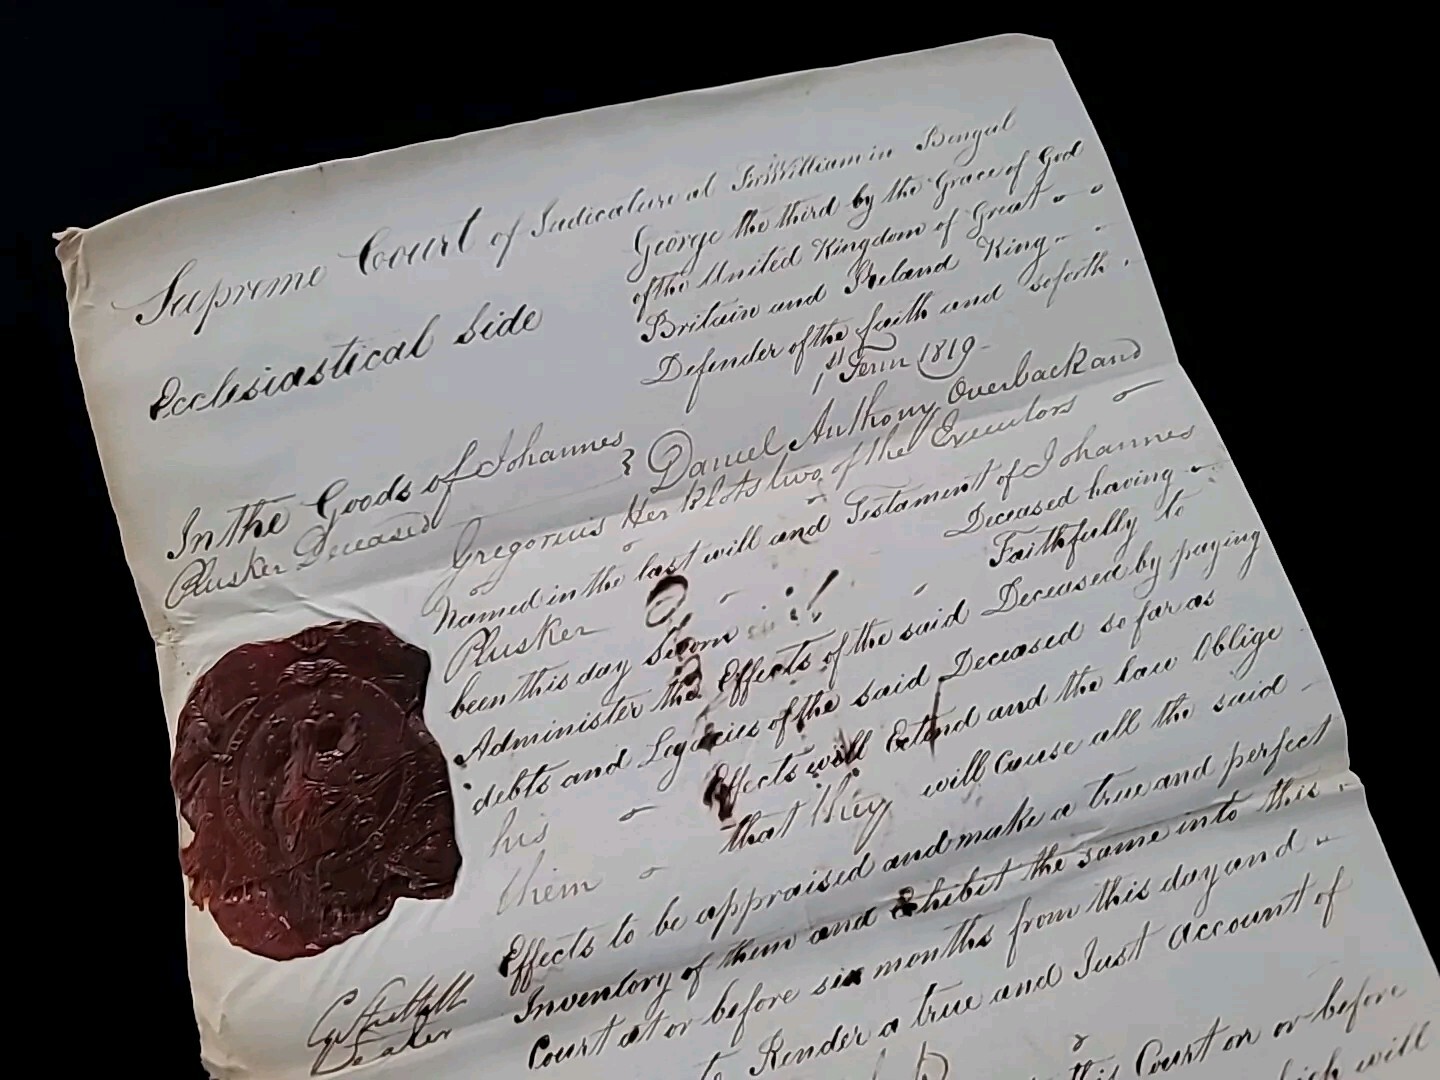 Supreme Court of Judicature at Fort William in Bengal
Ecclesiastical Side
George the third by the Grace of God
of the United Kingdom of Great
Britain and Ireland King
Defender of the faith and soforth.
1st Term 1819
In the Goods of Johannes
Plusker Deceased
Daniel Anthony Overbeck and
Gregorius Herklots two of the Executors
Named in the last will and Testament of Johannes
Plusker Deceased having
been this day Sworn Faithfully to
Administer the Effects of the said Deceased by paying
debts and Legacies of the said Deceased so far as
his Effects will Extend and the law Oblige
them that they will cause all the said
Effects to be appraised and make a true and perfect
Inventory of them and Exhibit the same into this
Court at or before six months from this day and
to Render a true and Just Account of
this Court on or before
which will
Sealer